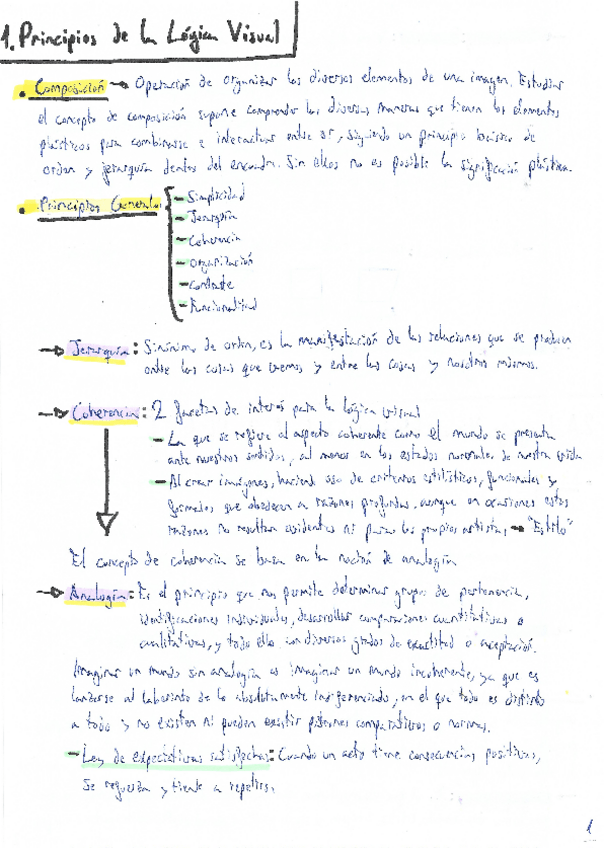 1. Principios de la Lógica Visual
• Composición → Operación de organizar los diversos elementos de una imagen. Estudiar
el concepto de composición supone comprender las diversas maneras que tienen los elementos
plásticos para combinarse e interactuar entre sí, siguiendo un principio básico de
orden y jerarquía dentro del encuadre. Sin ellos no es posible la significación plástica.
• Principios Generales
- Simplicidad
- Jerarquía
- Coherencia
- Organización
- Contraste
- Funcionalidad
→ Jerarquía: Sinónimo de orden, es la manifestación de las relaciones que se producen
entre las cosas que vemos y entre las cosas y nosotros mismos.
→ Coherencia: 2 facetas de interés para la lógica visual
- La que se refiere al aspecto coherente como el mundo se presenta
ante nuestros sentidos, al menos en los estados normales de nuestra vida
- Al crear imágenes, haciendo uso de criterios estilísticos, funcionales y
formales que obedecen a razones profundas, aunque en ocasiones estas
razones no resultan evidentes ni para los propios artistas → "Estilo"
El concepto de coherencia se basa en la noción de analogía
→ Analogía: Es el principio que nos permite determinar grupos de pertenencia,
identificaciones individuales, desarrollar comparaciones cuantitativas o
cualitativas, y todo ello con diversos grados de exactitud o aceptación.
Imaginar un mundo sin analogía es imaginar un mundo incoherente, ya que es
lanzarse al laberinto de lo absolutamente indiferenciado, en el que todo es distinto
a todo y no existen ni pueden existir patrones comparativos o normas.
- Ley de expectativas satisfechas: Cuando un acto tiene consecuencias positivas,
se refuerza y tiende a repetirse.
1